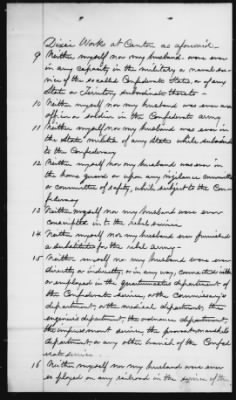 Dixie Works at Canton as aforesaid.
9 Neither myself nor my husband were ever
in any capacity in the military or naval ser-
vice of the so called Confederate States, or of any
State or Territory subordinate thereto -
10 Neither myself nor my husband was ever an
officer or soldier in the Confederate army
11 Neither myself nor my husband was ever in
the State militia of any State while subordinate
to the Confederacy
12 Neither myself nor my husband was ever in
the home guard or upon any vigilance committee
or committee of safety, while subject to the Con-
federacy
13 Neither myself nor my husband were ever
conscripted into the rebel service
14 Neither myself nor my husband ever furnished
a substitute for the rebel army -
15 Neither myself nor my husband were ever
directly or indirectly, or in any way, connected with
or employed in the quartermasters department of
the Confederate service, or the commissary's
department, or the medical department, the
engineer's department, the ordnance department,
the impressment service, the provost marshals
department, or any other branch of the Confed
erate service
16 Neither myself nor my husband were ever
employed on any railroad in the service of the